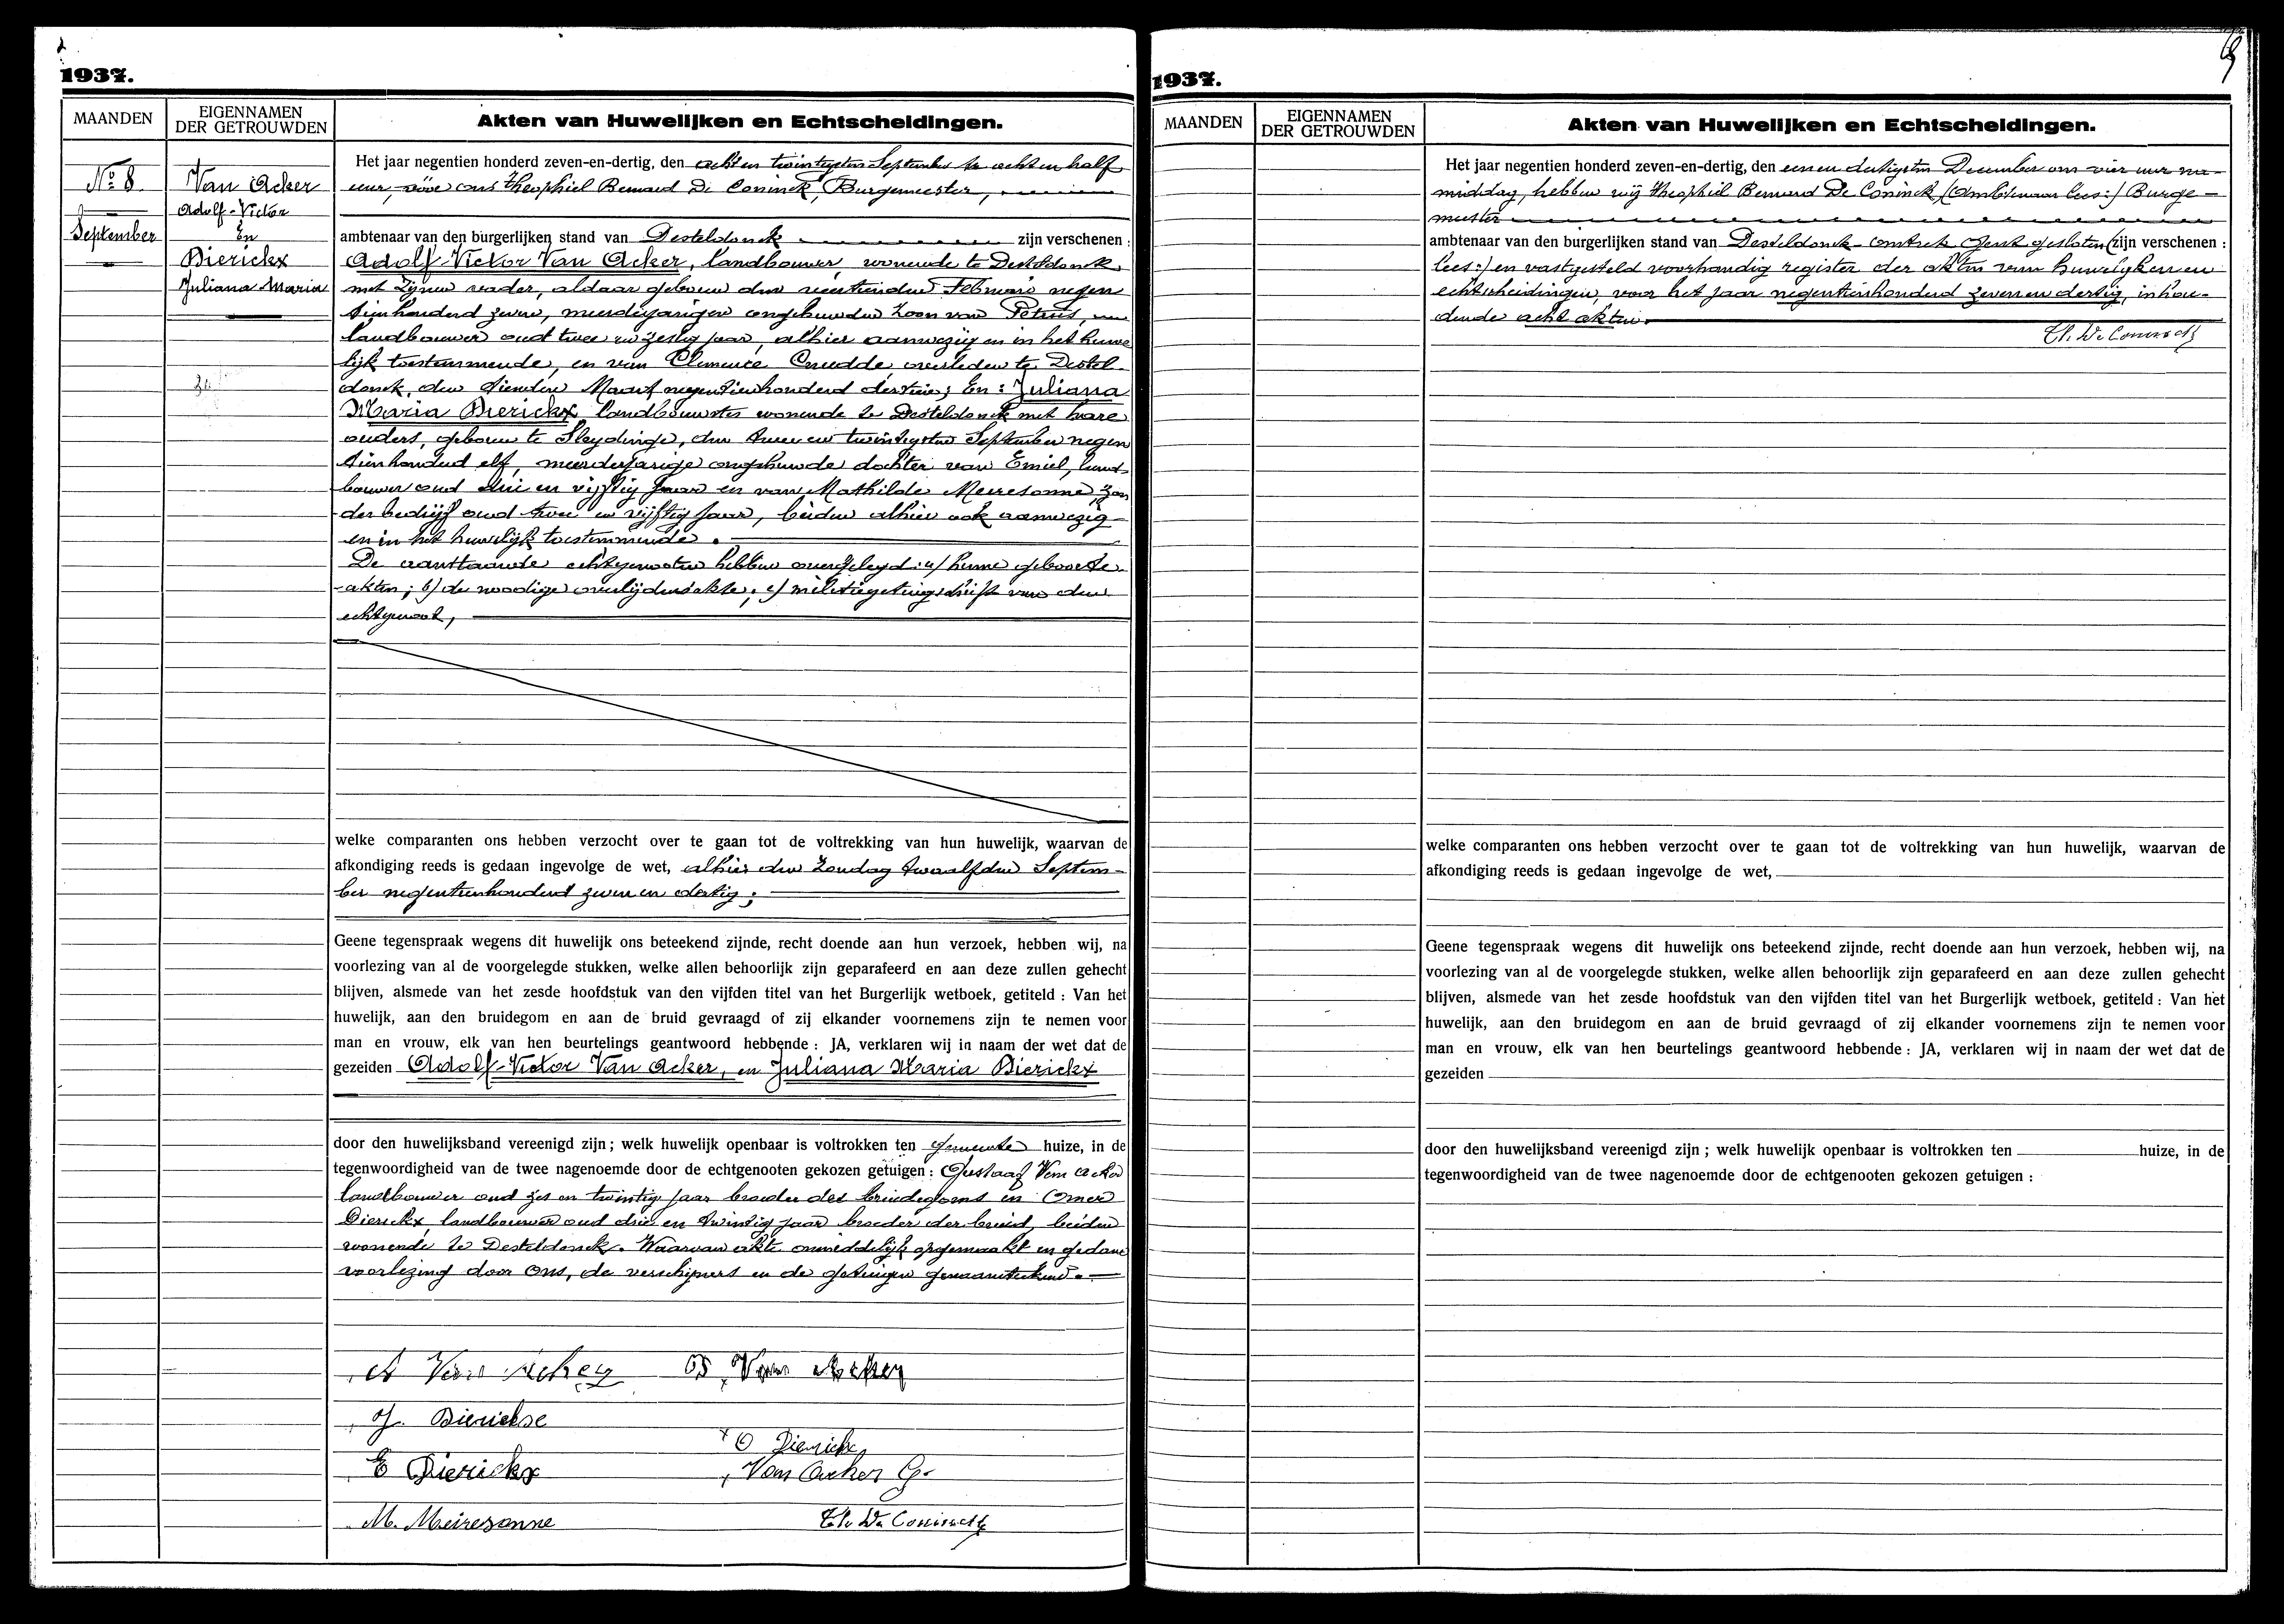 1937.
MAANDEN
EIGENNAMEN
DER GETROUWDEN
Akten van Huwelijken en Echtscheidingen.
No 8
September
Van Acker
Adolf-Victor
En
Dierickx
Juliana Maria
Het jaar negentien honderd zeven-en-dertig, den acht en twintigsten September te acht en half
uur, voor ons Theophiel Bernard De Coninck, Burgemeester,
ambtenaar van den burgerlijken stand van Desteldonck zijn verschenen :
Adolf-Victor Van Acker, landbouwer, wonende te Desteldonck
met zijnen vader, aldaar geboren den Februari negen
tienhonderd zeven, meerderjarigen ongehuwden zoon van Petrus,
landbouwer oud twee en zestig jaar, alhier aanwezig en in het huwe
lijk toestemmende, en van Clemence Cnudde, overleden te Destel-
donck, den tienden Maart negentienhonderd dertien; En : Juliana
Maria Dierickx, landbouwster wonende te Desteldonck met hare
ouders, geboren te Sleydinge, den twee en twintigsten September negen
tienhonderd elf, meerderjarige ongehuwde dochter van Emiel, land-
bouwer oud drie en vijftig jaar en van Mathilde Meiresonne, zon
der bedrijf oud twee en vijftig jaar, beiden alhier ook aanwezig
en in het huwelijk toestemmende.
De aanstaande echtgenoten hebben overgelegd : a) hunne geboorte
akten; b) de noodige overlijdensakte; c) militiegetuigschrift van den
echtgenoot,
welke comparanten ons hebben verzocht over te gaan tot de voltrekking van hun huwelijk, waarvan de
afkondiging reeds is gedaan ingevolge de wet, alhier den Zondag twaalfden Septem-
ber negentienhonderd zeven en dertig;
Geene tegenspraak wegens dit huwelijk ons beteekend zijnde, recht doende aan hun verzoek, hebben wij, na
voorlezing van al de voorgelegde stukken, welke allen behoorlijk zijn geparafeerd en aan deze zullen gehecht
blijven, alsmede van het zesde hoofdstuk van den vijfden titel van het Burgerlijk wetboek, getiteld : Van het
huwelijk, aan den bruidegom en aan de bruid gevraagd of zij elkander voornemens zijn te nemen voor
man en vrouw, elk van hen beurtelings geantwoord hebbende : JA, verklaren wij in naam der wet dat de
gezeiden Adolf-Victor Van Acker, en Juliana Maria Dierickx
door den huwelijksband vereenigd zijn ; welk huwelijk openbaar is voltrokken ten gemeente huize, in de
tegenwoordigheid van de twee nagenoemde door de echtgenooten gekozen getuigen : Gustaaf Van Acker
landbouwer oud zes en twintig jaar broeder des bruidegoms en Omer
Dierickx, landbouwer oud drie en twintig jaar broeder der bruid, beiden
wonende te Desteldonck. Waarvan akte onmiddelijk opgemaakt en gedane
voorlezing door Ons, de verschijners en de getuigen
A Van Acker
P Van Acker
J. Dierickse
O Dierickx
E Dierickx
Van Acker G.
M. Meiresonne
Th. De Coninck
1937.
MAANDEN
EIGENNAMEN
DER GETROUWDEN
Akten van Huwelijken en Echtscheidingen.
Het jaar negentien honderd zeven-en-dertig, den een en dertigsten December om vier uur na-
middag, hebben wij Theophiel Bernard De Coninck, (Ambtenaar lees:) Burge-
meester
ambtenaar van den burgerlijken stand van Desteldonck gesloten (zijn verschenen :
lees:) en vastgesteld voorhandig register der akten van huwelijken en
echtscheidingen, voor het jaar negentienhonderd zeven en dertig, inhou-
dende acht akten.
Th. De Coninck
welke comparanten ons hebben verzocht over te gaan tot de voltrekking van hun huwelijk, waarvan de
afkondiging reeds is gedaan ingevolge de wet,
Geene tegenspraak wegens dit huwelijk ons beteekend zijnde, recht doende aan hun verzoek, hebben wij, na
voorlezing van al de voorgelegde stukken, welke allen behoorlijk zijn geparafeerd en aan deze zullen gehecht
blijven, alsmede van het zesde hoofdstuk van den vijfden titel van het Burgerlijk wetboek, getiteld : Van het
huwelijk, aan den bruidegom en aan de bruid gevraagd of zij elkander voornemens zijn te nemen voor
man en vrouw, elk van hen beurtelings geantwoord hebbende : JA, verklaren wij in naam der wet dat de
gezeiden
door den huwelijksband vereenigd zijn ; welk huwelijk openbaar is voltrokken ten huize, in de
tegenwoordigheid van de twee nagenoemde door de echtgenooten gekozen getuigen :